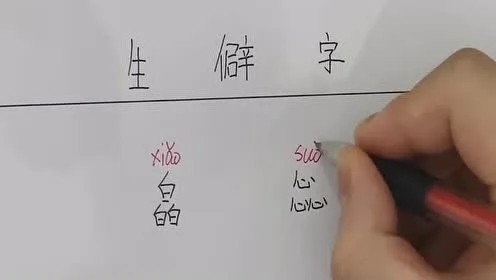 生 僻 字
xiǎo suo
皛 惢